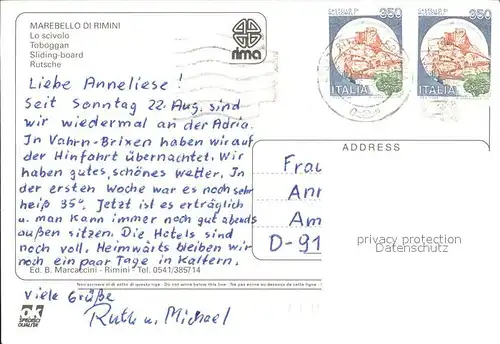 MAREBELLO DI RIMINI
Lo scivolo
Toboggan
Sliding-board
Rutsche
rima
350
350
ITALIA
ITALIA
Liebe Anneliese!
Seit Sonntag 22. Aug. sind
wir wiedermal an der Adria.
In Vahrn-Brixen haben wir auf
der Hinfahrt übernachtet. Wir
haben gutes, schönes Wetter. In
der ersten Woche war es noch sehr
heiß 35°. Jetzt ist es erträglich
u. man kann immer noch gut abends
außen sitzen. Die Hotels sind
noch voll. Heimwärts bleiben wir
noch ein paar Tage in Kaltern.
Viele Grüße
Ruth u. Michael
ADDRESS
Frau
Ann
Am
D-91
privacy protection
Datenschutz
Ed. B. Marcaccini - Rimini - Tel. 0541/385714
Non scrivere al di sotto di questa riga - Do not write below this line - Ne rien écrire au dessous de cette ligne
ok
SPEDISCI
QUALITA'